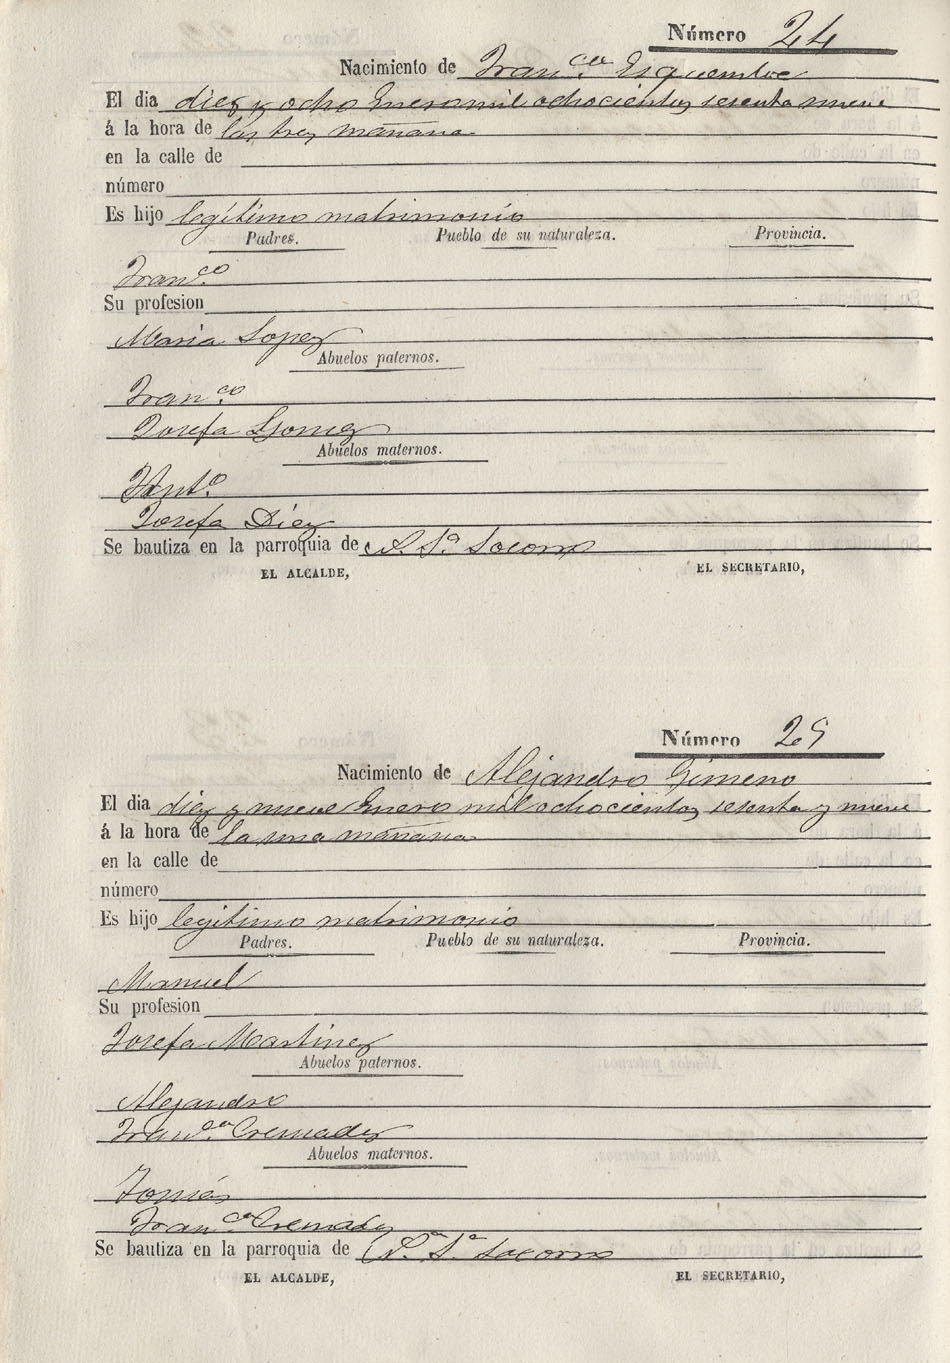 Número 24
Nacimiento de Fran.co Esquembre
El dia diez y ocho Enero mil ochocientos sesenta nueve
á la hora de las tres mañana
en la calle de
número
Es hijo legítimo matrimonio
Padres. Pueblo de su naturaleza. Provincia.
Fran.co
Su profesion
Maria Lopez
Abuelos paternos.
Fran.co
Josefa Gomez
Abuelos maternos.
Ant.o
Josefa Diez
Se bautiza en la parroquia de N. S.a Socorro
EL ALCALDE, EL SECRETARIO,
Número 25
Nacimiento de Alejandro Gimeno
El dia diez y nueve Enero mil ochocientos sesenta y nueve
á la hora de la una mañana
en la calle de
número
Es hijo legitimo matrimonio
Padres. Pueblo de su naturaleza. Provincia.
Manuel
Su profesion
Josefa Martinez
Abuelos paternos.
Alejandro
Fran.ca Cremades
Abuelos maternos.
Tomás
Fran.ca Cremades
Se bautiza en la parroquia de N.a S.a Socorro
EL ALCALDE, EL SECRETARIO,